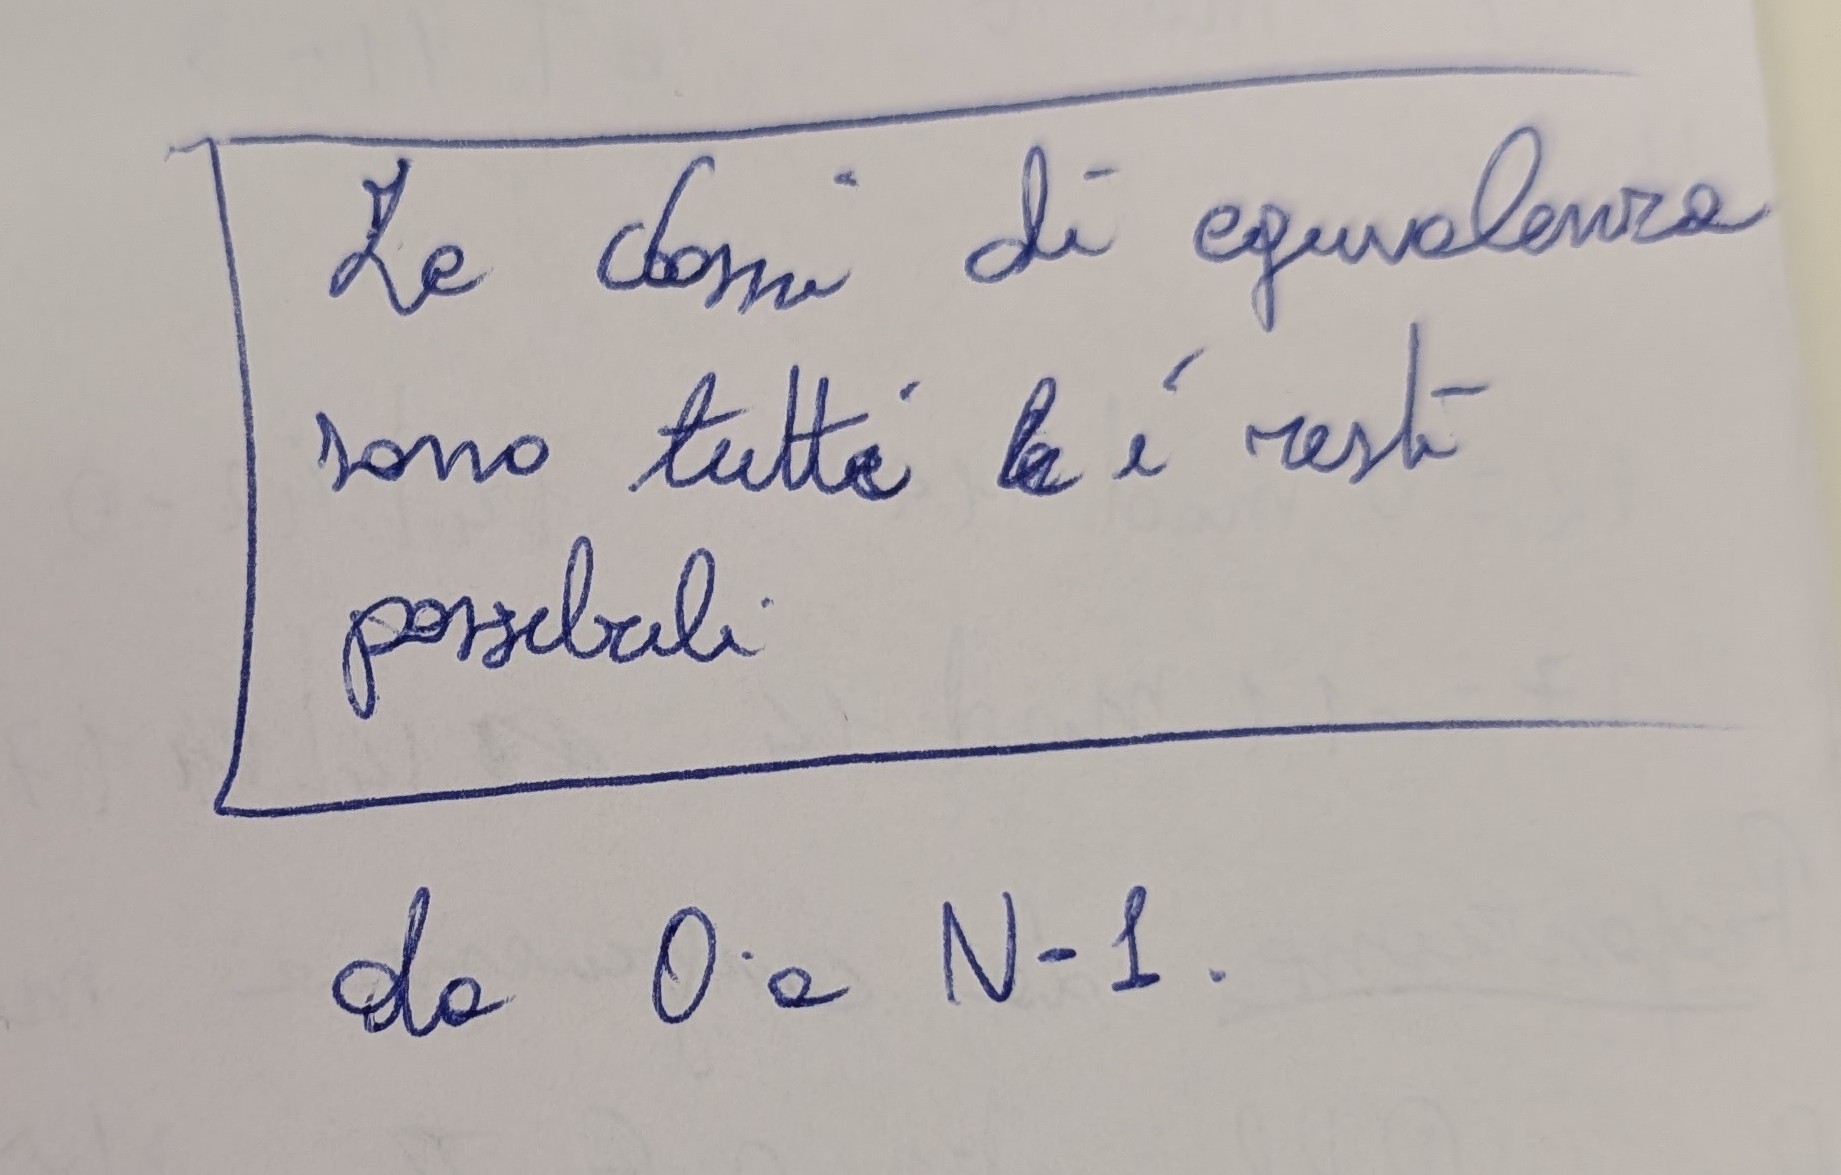 Le classi di equivalenza
sono tutti i resti
possibili
da 0 a N-1.